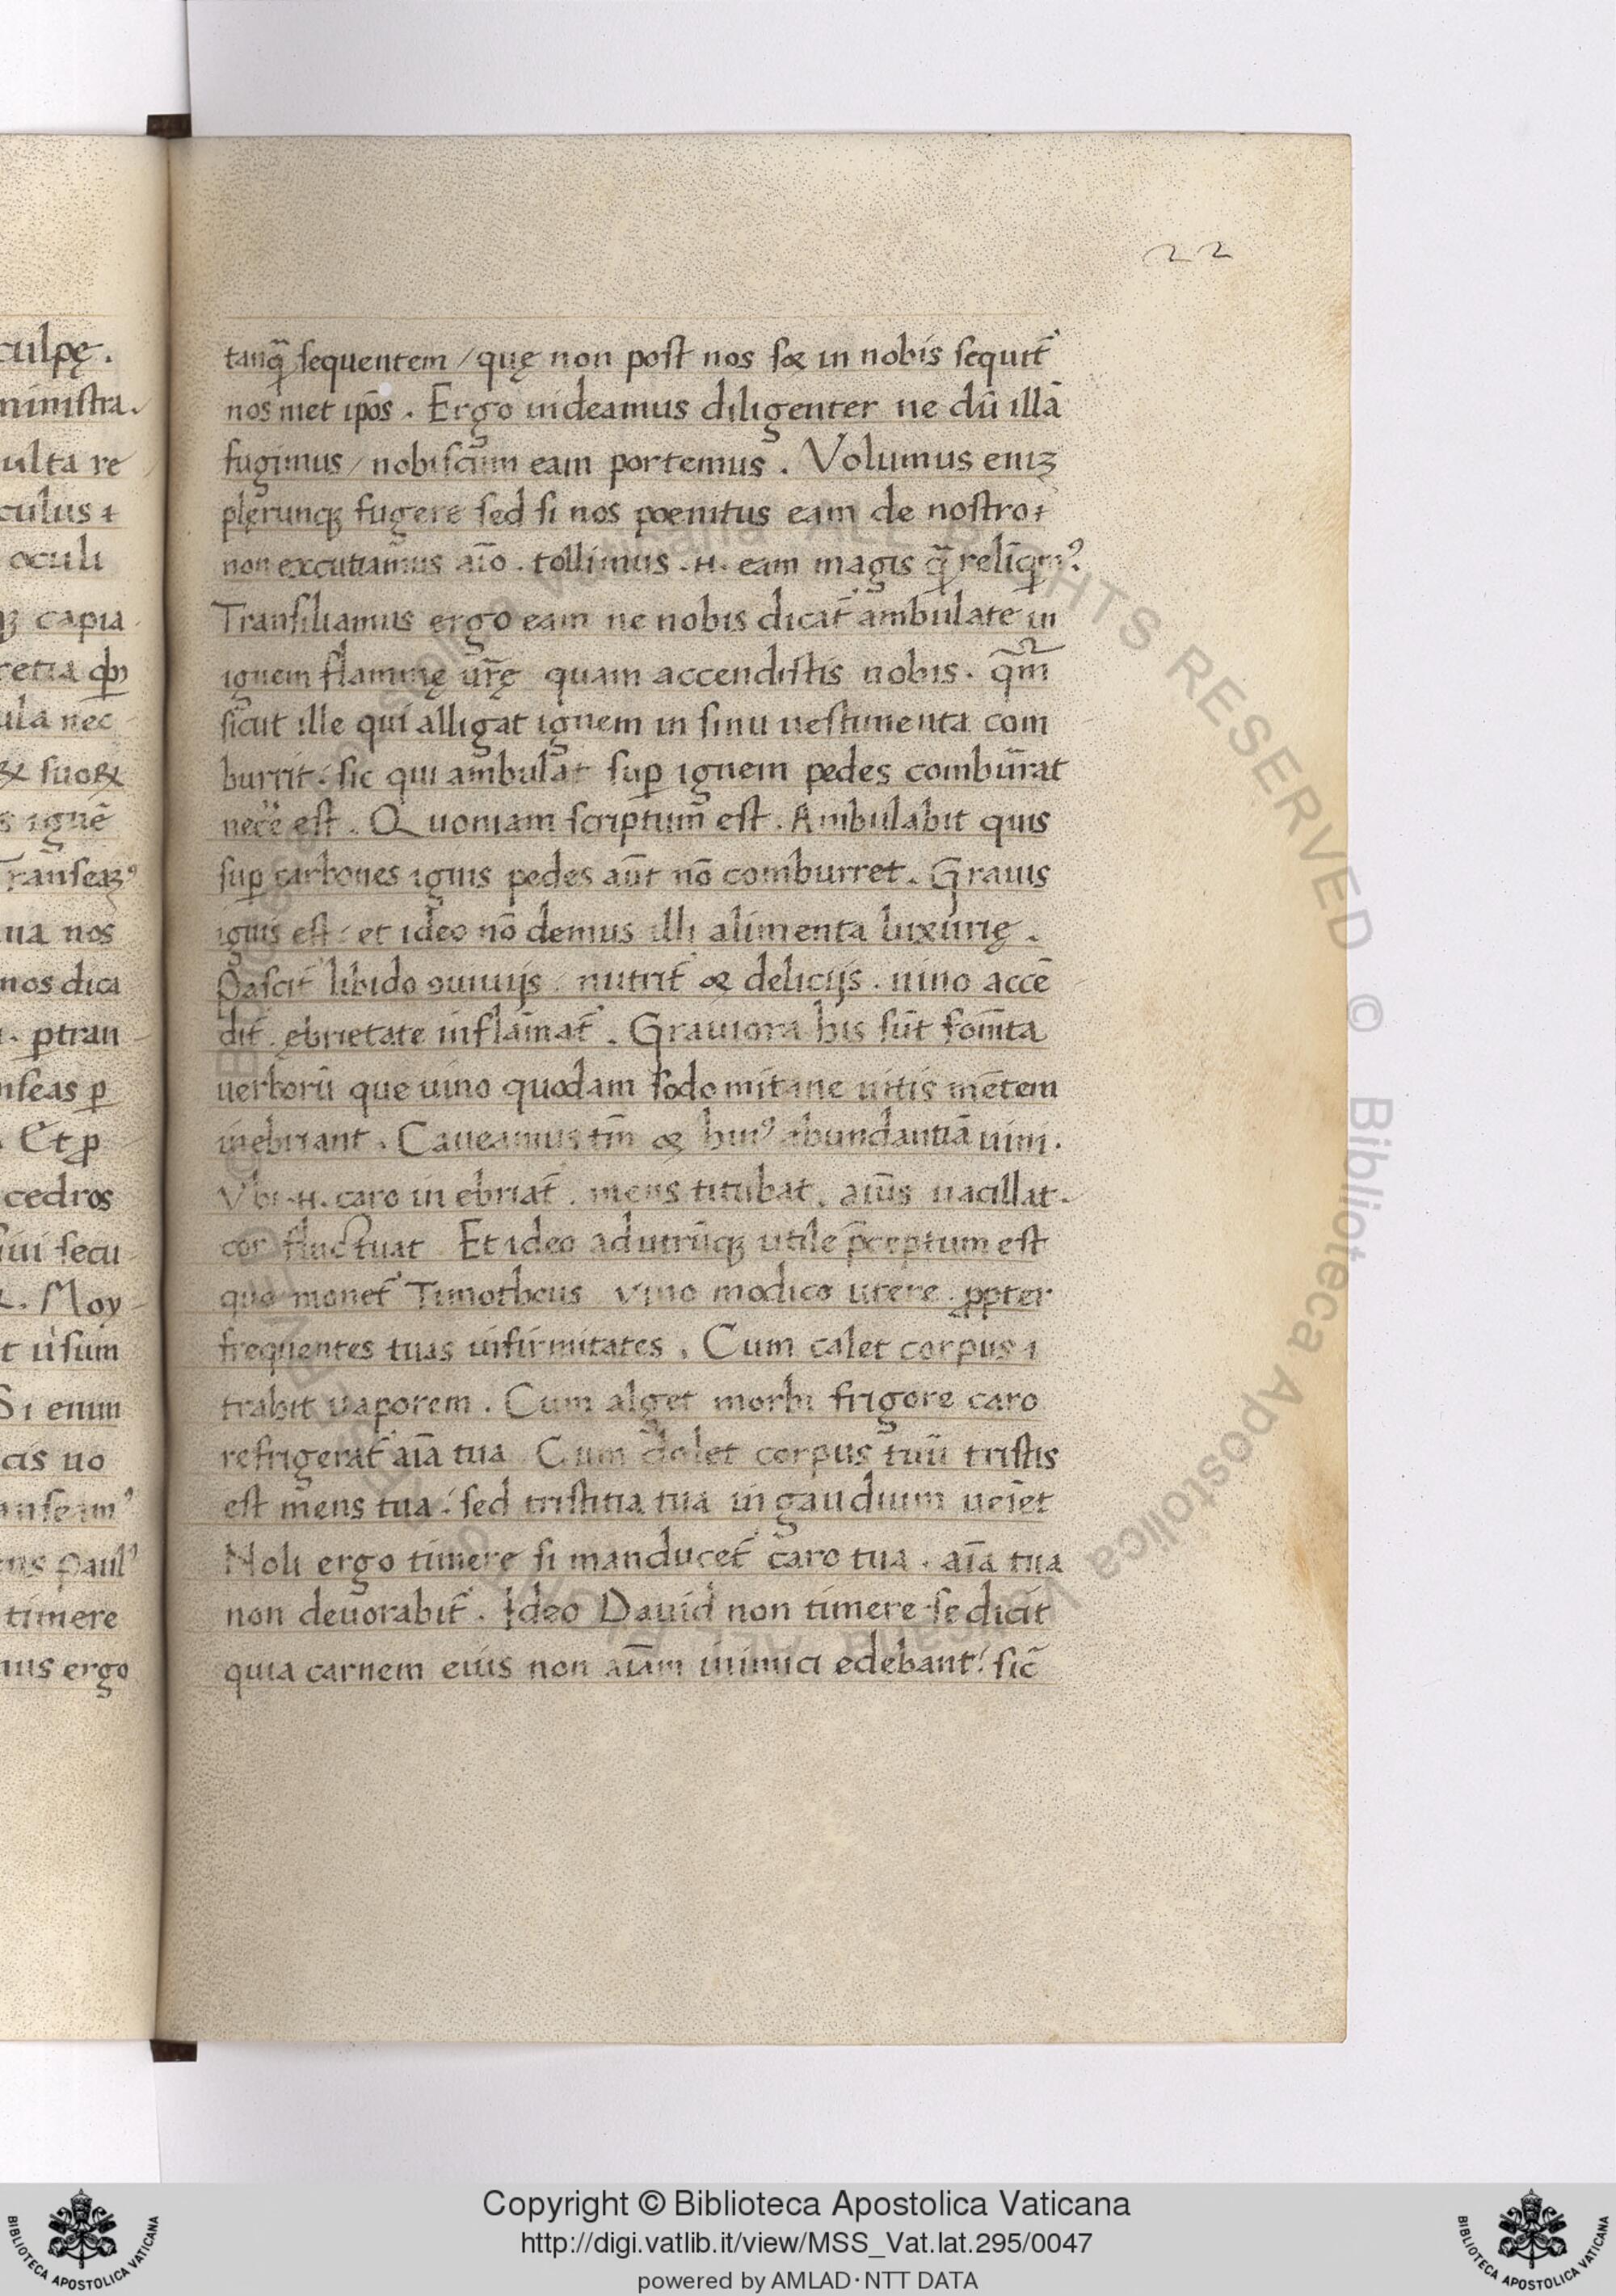 culpę.
ministra.
ulta re
culus ı
oculi
capia
retia
ula nec
suoꝝ
s ignē
Transeaꝫꝰ
ua nos
nos dica
ꝑtran
nseas ꝑ
Et ꝓ
cedros
sui secu
Moy
t uisum
Si enim
cis uo
anseamꝰ
ens paulꝰ
timere
mus ergo
22
tanꝙ̄ sequentem / quę non post nos sꝫ in nobis sequit᷑
nos met ip̄os . Ergo uideamus diligenter ne dū illā
fugimus / nobiscum eam portemus . Volumus eniꝫ
plerunqꝫ fugere sed si nos poenitus eam de nostro ı
non excutiamus aīo . tollimus .H. eam magis ꝙ̄ relīꝗmꝰ.
Transiliamus ergo eam ne nobis dicat᷑ ambulate in
ignem flammę ur̄ę quam accendistis nobis . qm̄
sicut ille qui alligat ignem in sinu uestimenta com
burrit : sic qui ambulat suꝑ ignem pedes combūrat
nec̄e est . Quoniam scriptum est . Ambulabit quis
suꝑ carbones ignis pedes aūt nō comburret . Grauis
ignis est : et ideo nō demus illi alimenta luxurię .
Pascit᷑ libido ꝯuiuijs / nutrit᷑ ꝫ delicijs . uino accē
dit᷑ . ębrietate inflāmat᷑ . Grauiora his sūt fom̄ta
uerborū que uino quodam sodomitane uitis mētem
inebriant . Caueamus tm̄ ꝫ huiꝰ abundantiā uini .
Vbi .H. caro in ebriat᷑ . mens titubat . aiūs uacillat .
cor fluctuat Et ideo ad utrūqꝫ utile p̄ceptum est
quo monet᷑ Timotheus Vino modico utere ꝓpter
frequentes tuas infirmitates . Cum calet corpus ı
trahit uaporem . Cum alget morbi frigore caro
refrigerat᷑ aīa tua Cum dolet corpus tuū tristis
est mens tua : sed tristitia tua in gaudium ueīet
Noli ergo timere si manducet᷑ caro tua . aīa tua
non deuorabit᷑ . Ideo Dauid non timere se dicit
quia carnem eius non aīam inimici edebant : sic̄
Copyright © Biblioteca Apostolica Vaticana
http://digi.vatlib.it/view/MSS_Vat.lat.295/0047
powered by AMLAD·NTT DATA
BIBLIOTECA APOSTOLICA VATICANA
BIBLIOTECA APOSTOLICA VATICANA
© Biblioteca Apostolica Vaticana ALL RIGHTS RESERVED